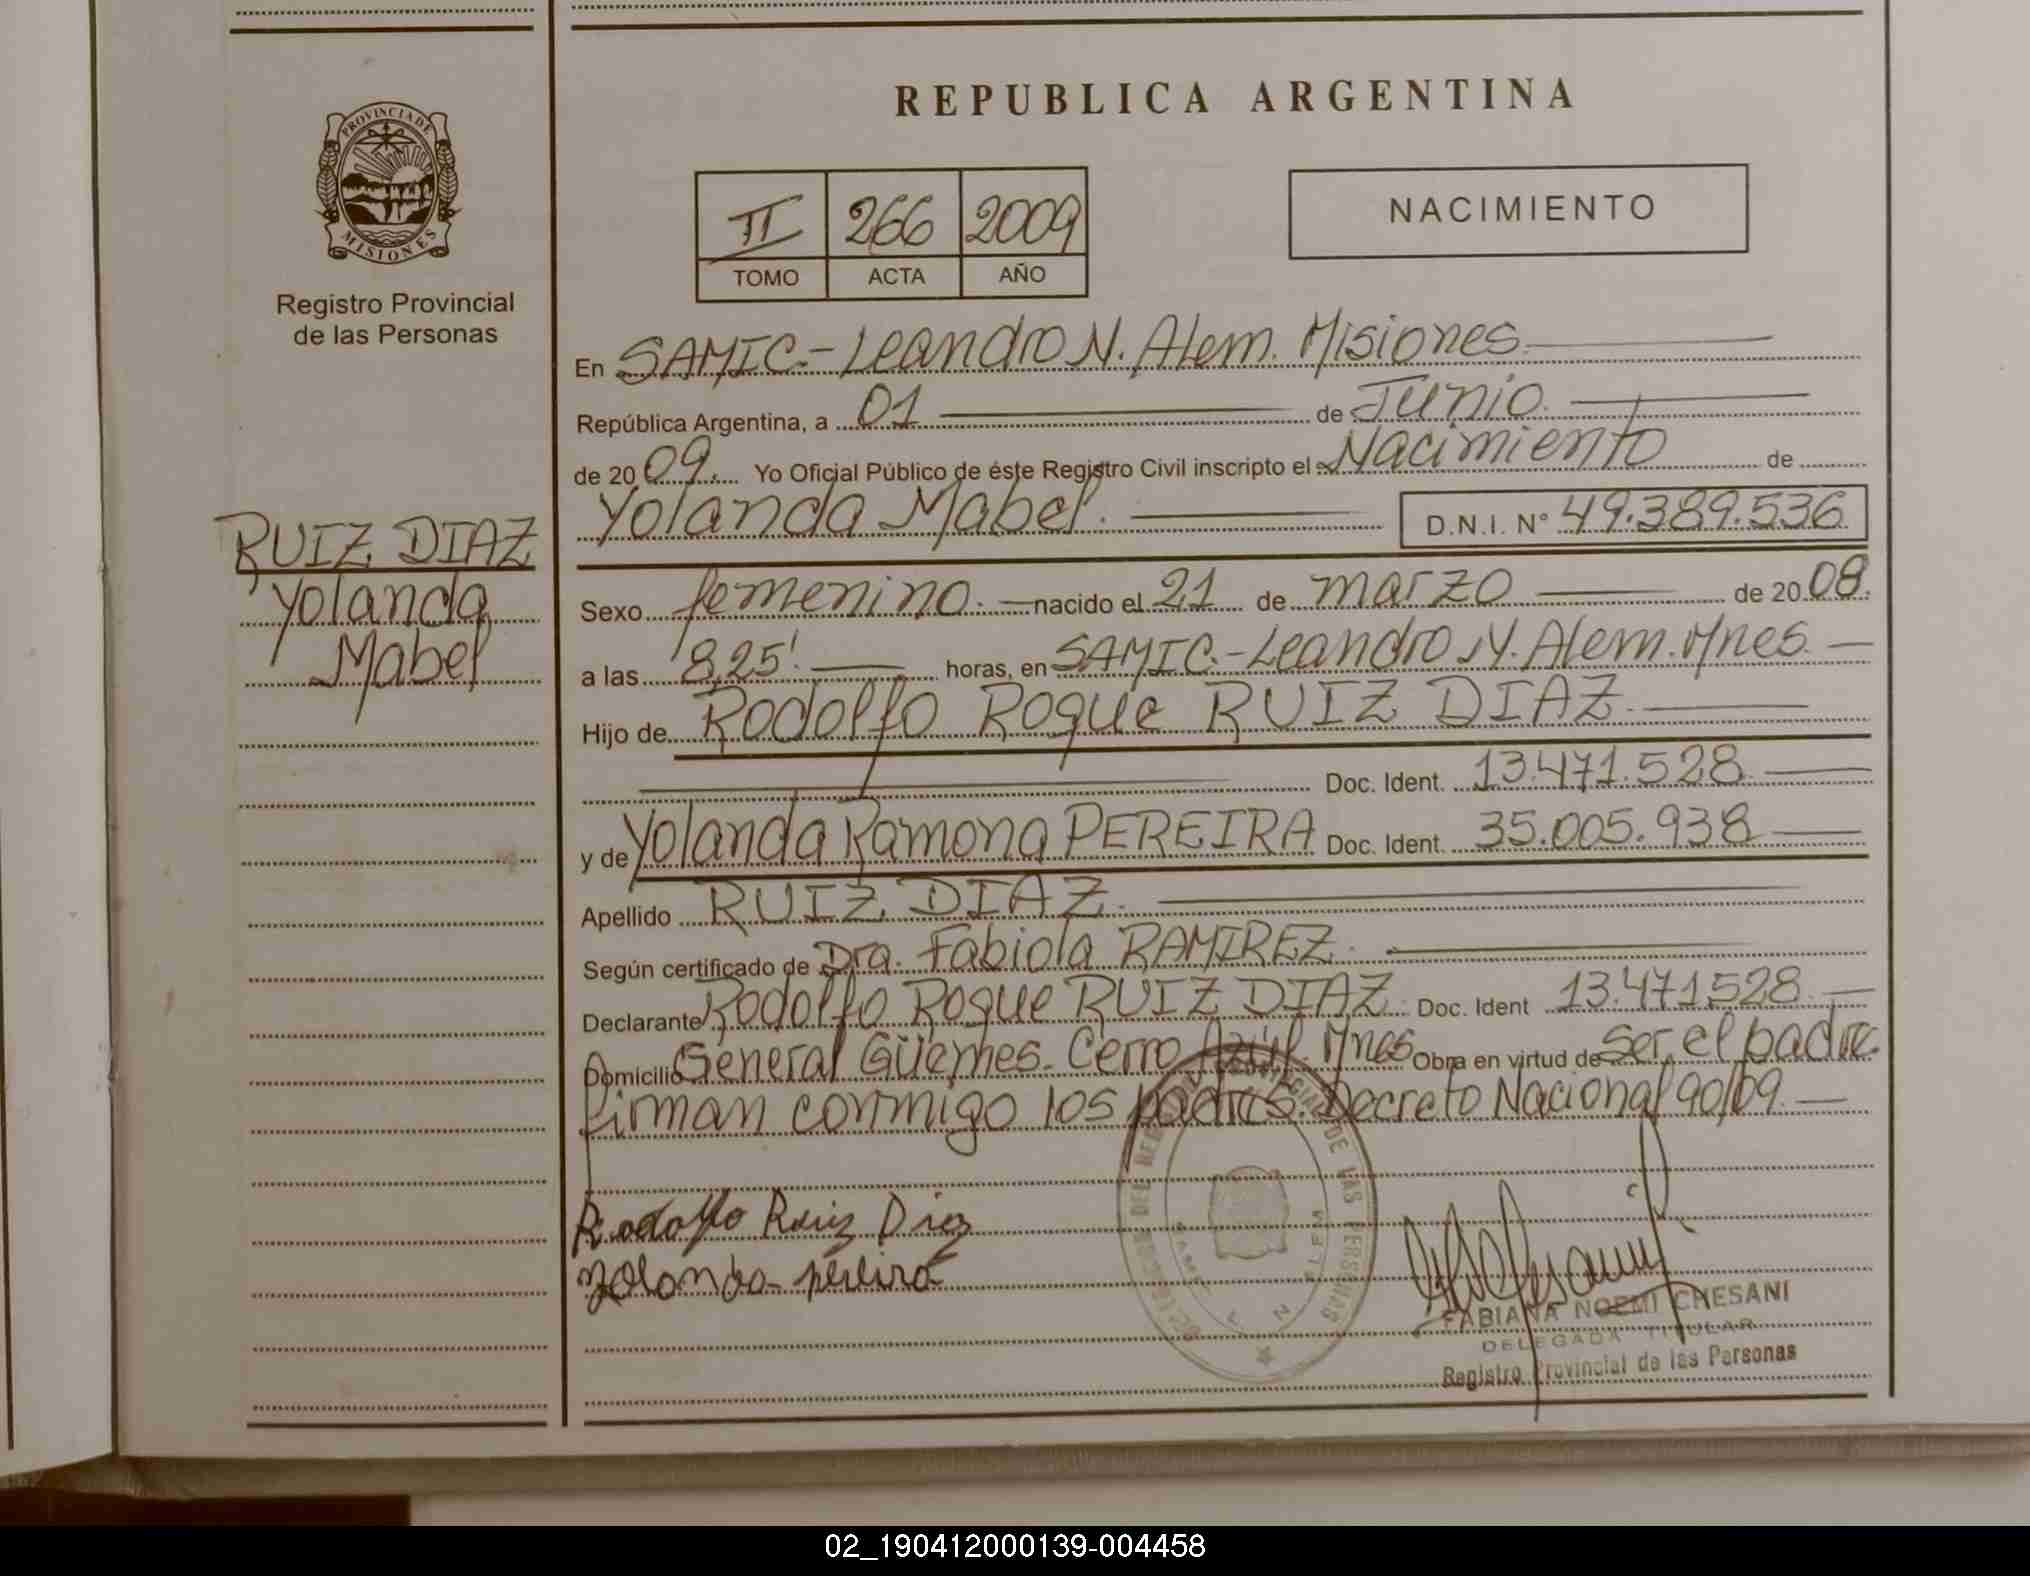 REPUBLICA ARGENTINA
PROVINCIA DE
MISIONES
Registro Provincial
de las Personas
II 266 2009
TOMO ACTA AÑO
NACIMIENTO
En SAMIC.- Leandro N. Alem. Misiones.
República Argentina, a 01 de Junio.
de 2009. Yo Oficial Público de éste Registro Civil inscripto el Nacimiento de
Yolanda Mabel. D.N.I. N° 49.389.536
RUIZ DIAZ
Yolanda
Mabel
Sexo femenino. nacido el 21 de marzo de 2008.
a las 8,25'. horas, en SAMIC.- Leandro N. Alem. Mnes.
Hijo de Rodolfo Roque RUIZ DIAZ.
Doc. Ident. 13.471.528
y de Yolanda Ramona PEREIRA Doc. Ident. 35.005.938
Apellido RUIZ DIAZ.
Según certificado de Dra. Fabiola RAMIREZ.
Declarante Rodolfo Roque RUIZ DIAZ. Doc. Ident 13.471.528
Domicilio General Güemes. Cerro Azúl. Mnes Obra en virtud de ser el padre.
firman conmigo los padres. Decreto Nacional 90/09.
Rodolfo Ruiz Diaz
Yolanda pereira
PROVINCIAL DE LAS PERSONAS
FABIANA NOEMI CHESANI
DELEGADA TITULAR
Registro Provincial de las Personas
02_190412000139-004458